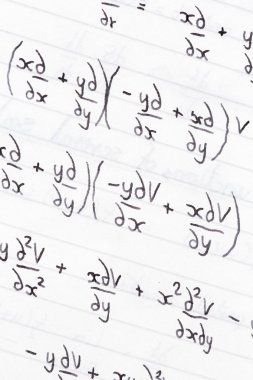 ∂/∂r = x∂/∂x + y
(x∂/∂x + y∂/∂y)(-y∂/∂x + x∂/∂y)V
x∂/∂x + y∂/∂y)(-y∂V/∂x + x∂V/∂y)
y ∂²V/∂x² + x∂V/∂y + x²∂²V/∂x∂y -
- y∂V + xy ∂²